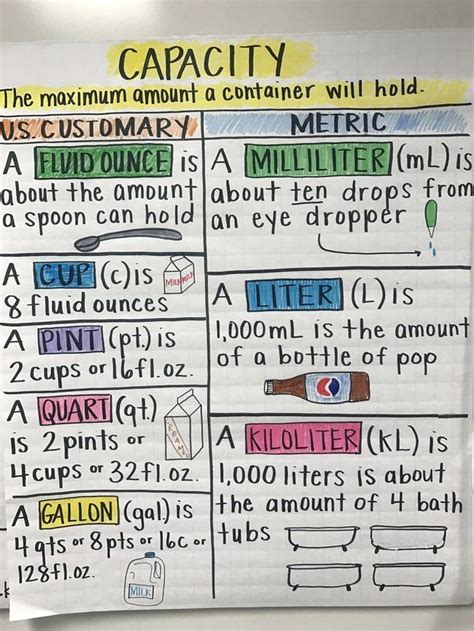 CAPACITY
The maximum amount a container will hold.
U.S. CUSTOMARY
A FLUID OUNCE is
about the amount
a spoon can hold
A CUP (c) is
MILK
8 fluid ounces
A PINT (pt.) is
2 cups or 16fl.oz.
A QUART (qt.)
is 2pints or
4cups or 32fl.oz.
A GALLON (gal) is
4 qts or 8pts or 16c or
128fl.oz.
MILK
METRIC
A MILLILITER (mL) is
about ten drops from
an eye dropper
A LITER (L) is
1,000mL is the amount
of a bottle of pop
A KILOLITER (kL) is
1,000 liters is about
the amount of 4 bath
tubs